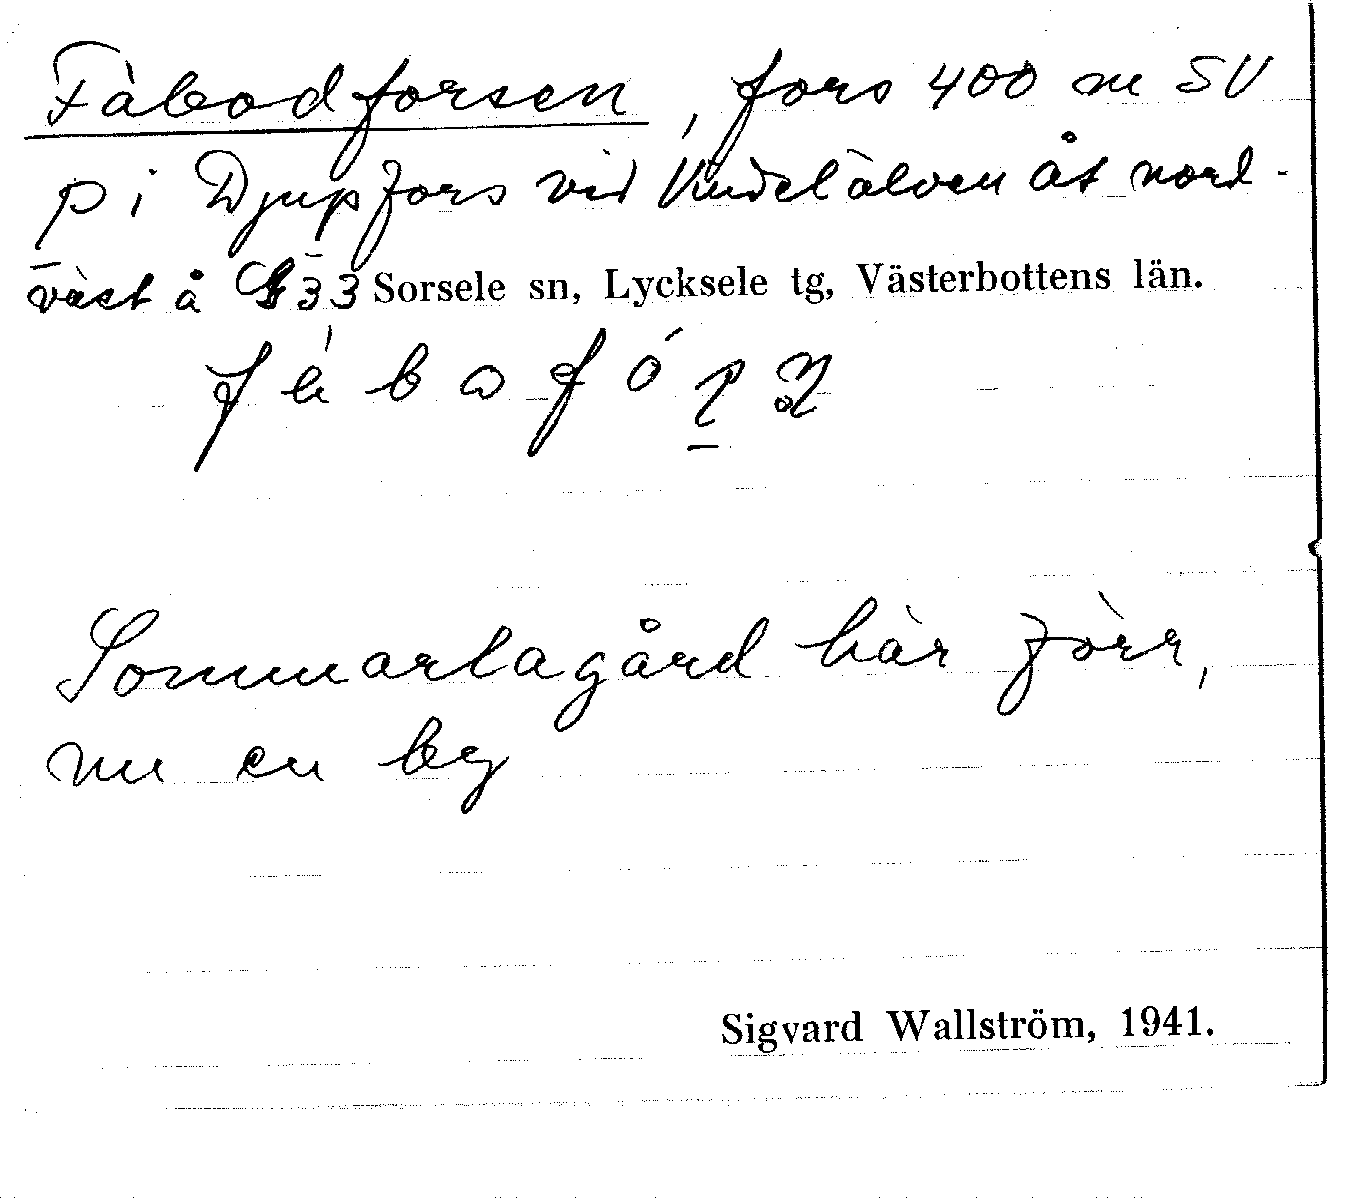 Fäbodforsen, fors 400 m SV
p i Djupfors vid Vindelälven åt nord-
väst å G33 Sorsele sn, Lycksele tg, Västerbottens län.
Sommarlagård här förr,
nu en by
Sigvard Wallström, 1941.